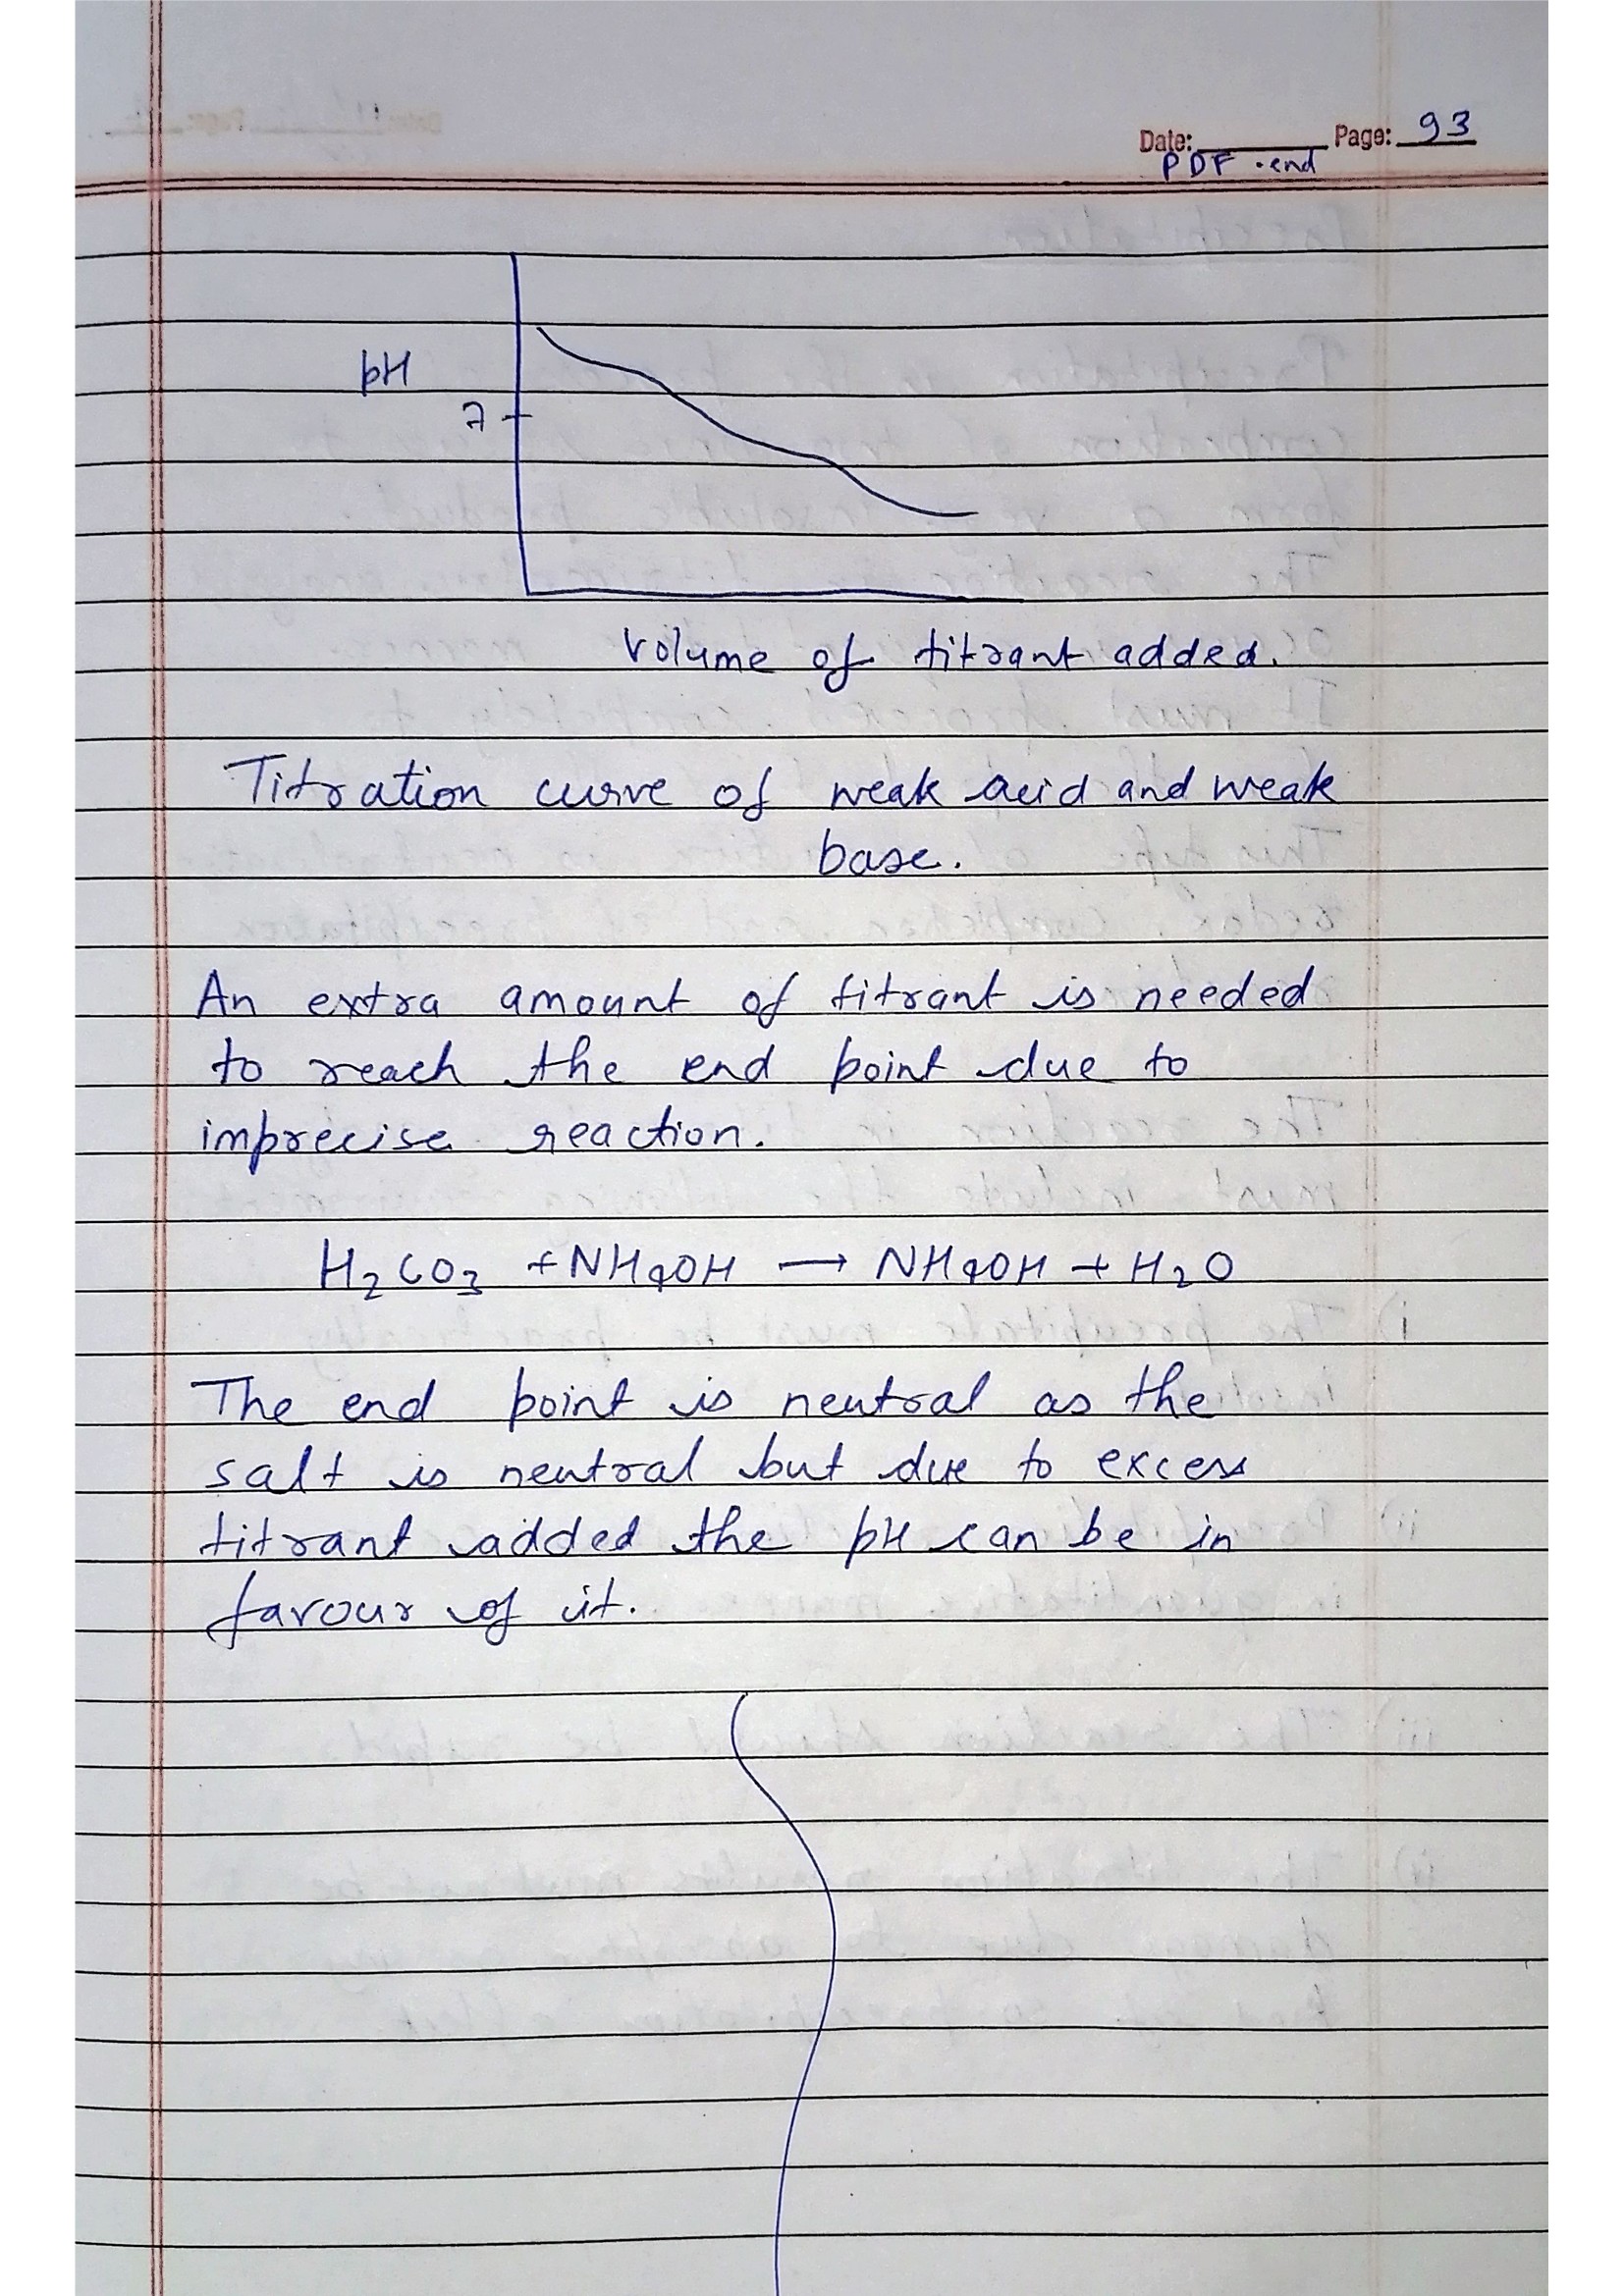 Date: Page: 93
PDF end
pH
7
Volume of titrant added.
Titration curve of weak acid and weak
base.
An extra amount of titrant is needed
to reach the end point due to
imprecise reaction.
H2CO3 + NH4OH → NH4OH + H2O
The end point is neutral as the
salt is neutral but due to excess
titrant added the pH can be in
favour of it.